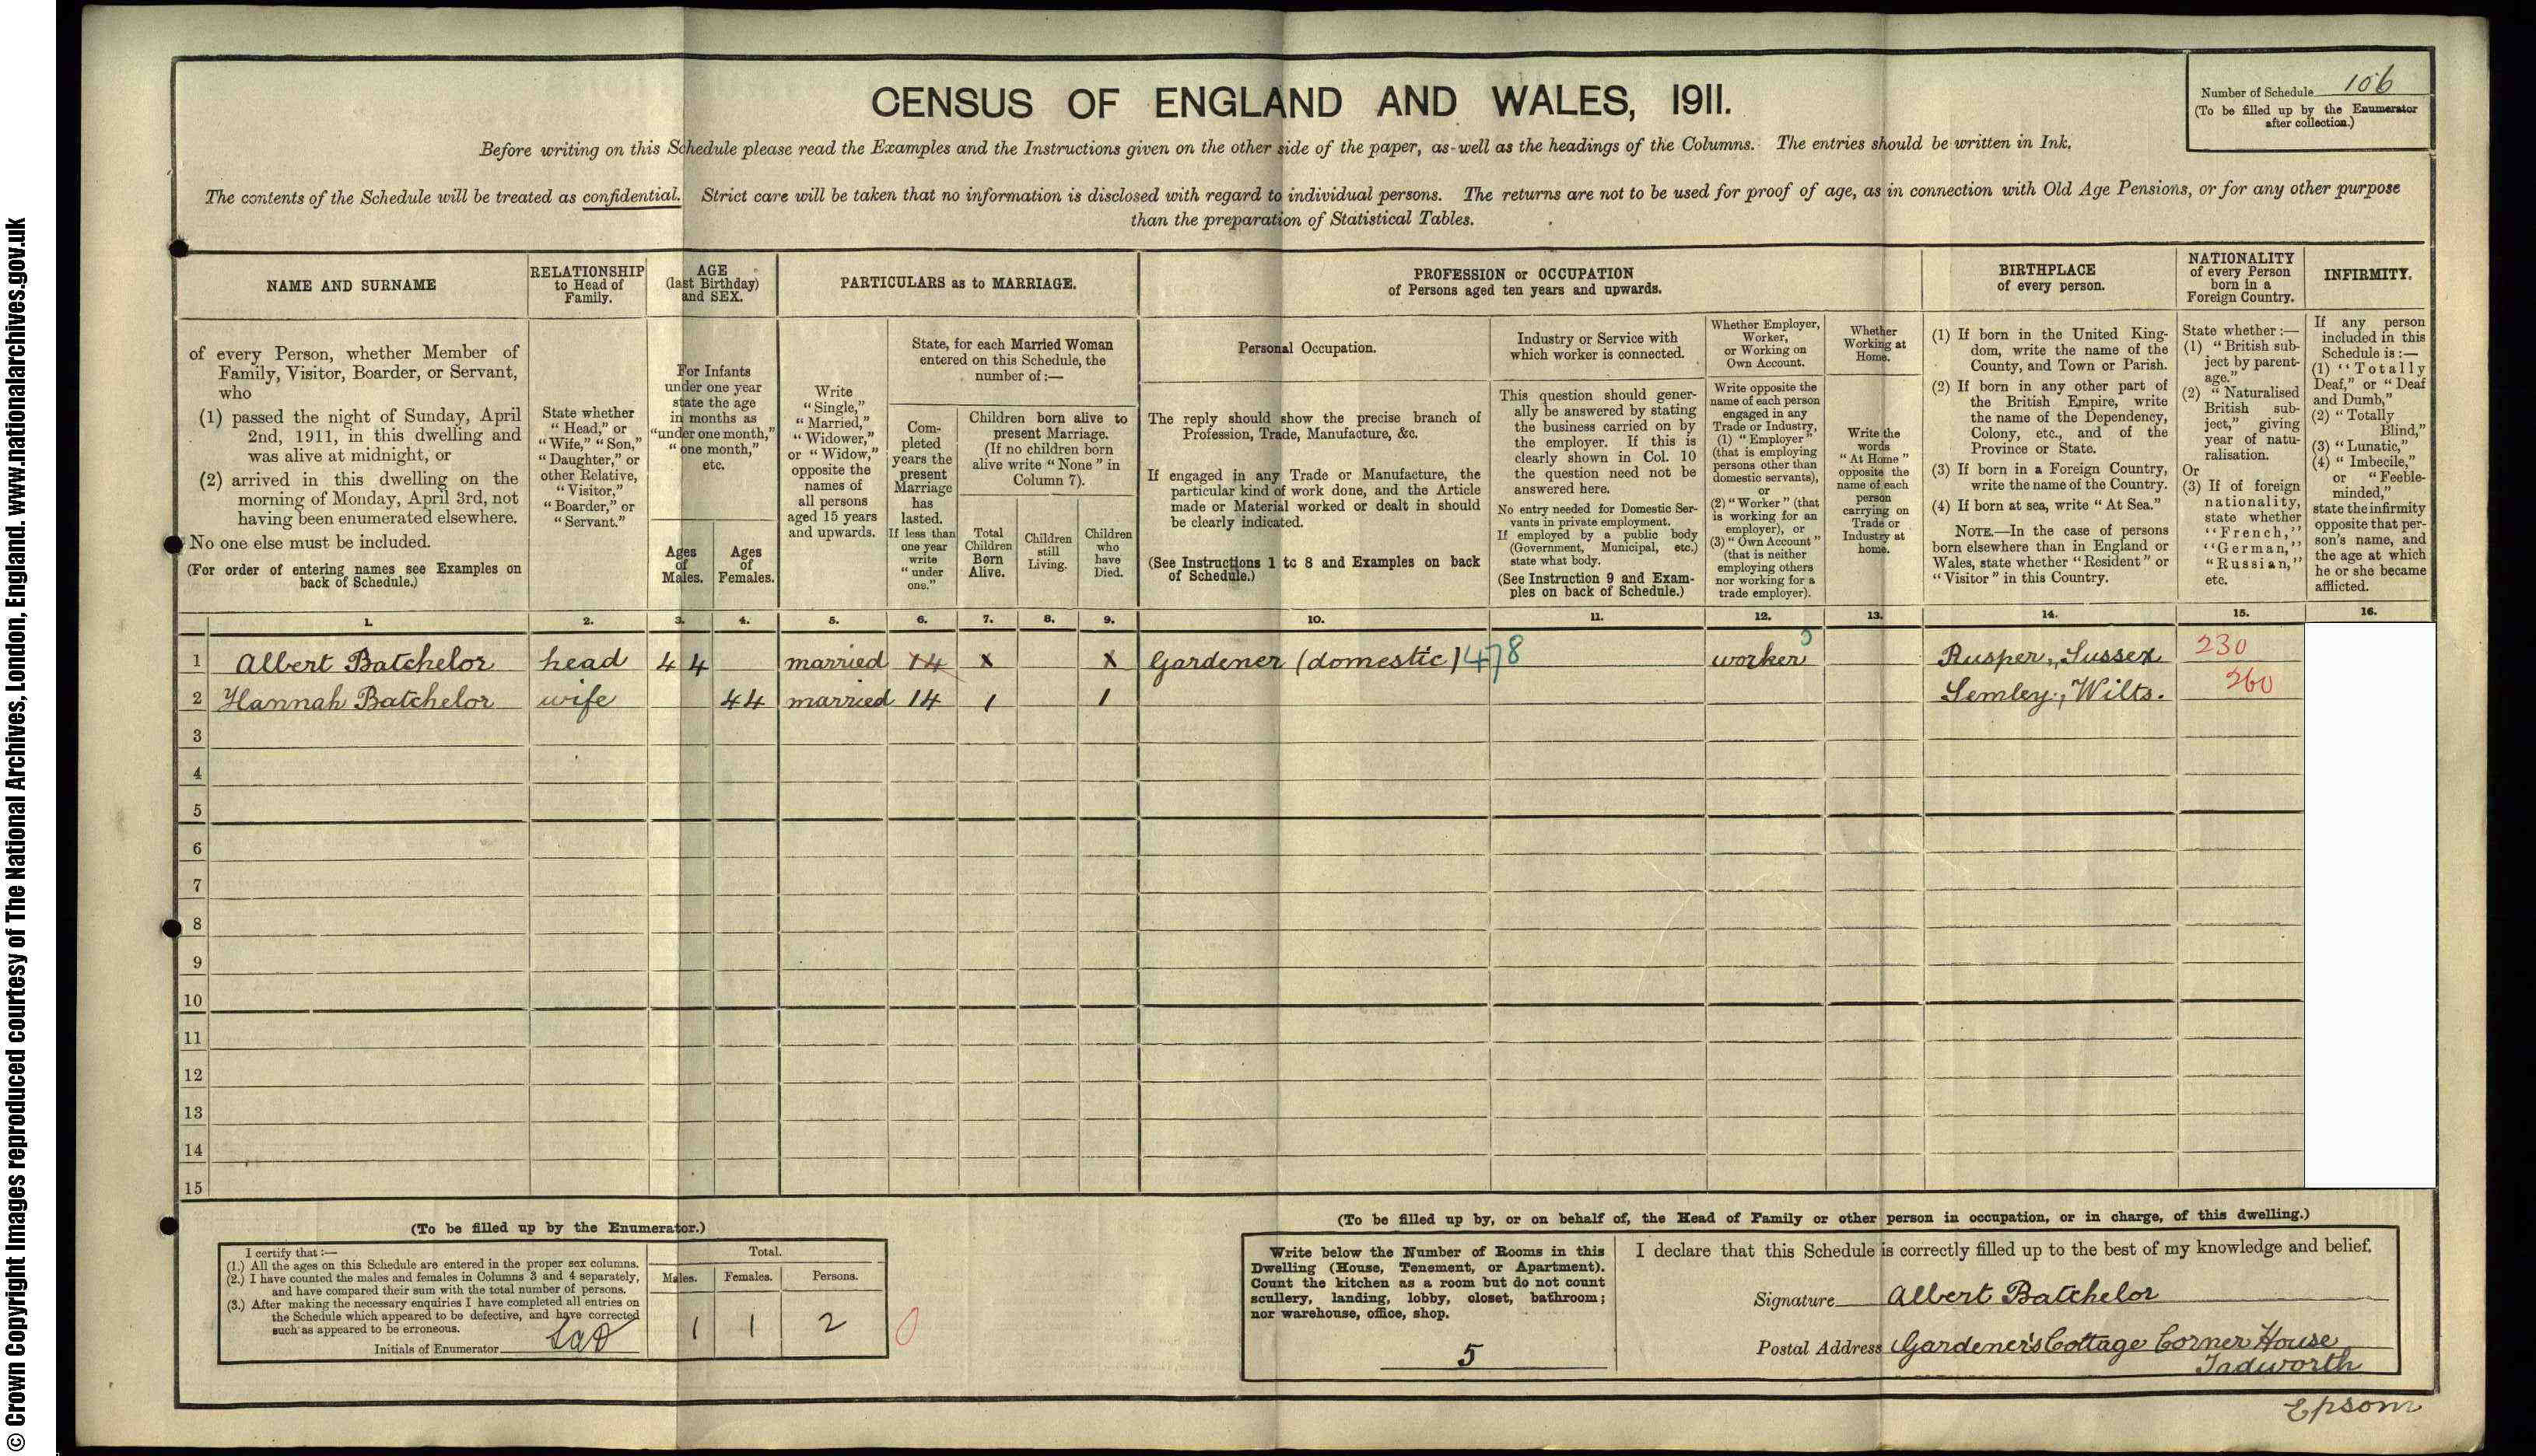 CENSUS OF ENGLAND AND WALES, 1911.
Number of Schedule 106
(To be filled up by the Enumerator
after collection.)
Before writing on this Schedule please read the Examples and the Instructions given on the other side of the paper, as well as the headings of the Columns. The entries should be written in Ink.
The contents of the Schedule will be treated as confidential. Strict care will be taken that no information is disclosed with regard to individual persons. The returns are not to be used for proof of age, as in connection with Old Age Pensions, or for any other purpose
than the preparation of Statistical Tables.
NAME AND SURNAME
of every Person, whether Member of
Family, Visitor, Boarder, or Servant,
who
(1) passed the night of Sunday, April
2nd, 1911, in this dwelling and
was alive at midnight, or
(2) arrived in this dwelling on the
morning of Monday, April 3rd, not
having been enumerated elsewhere.
No one else must be included.
(For order of entering names see Examples on
back of Schedule.)
RELATIONSHIP
to Head of
Family.
State whether
"Head," or
"Wife," "Son,"
"Daughter," or
other Relative,
"Visitor,"
"Boarder," or
"Servant."
AGE
(last Birthday)
and SEX.
For Infants
under one year
state the age
in months as
"under one month,"
"one month,"
etc.
Ages
of
Males.
Ages
of
Females.
PARTICULARS as to MARRIAGE.
Write
"Single,"
"Married,"
"Widower,"
or "Widow,"
opposite the
names of
all persons
aged 15 years
and upwards.
State, for each Married Woman
entered on this Schedule, the
number of:—
Com-
pleted
years the
present
Marriage
has
lasted.
If less than
one year
write
"under
one."
Children born alive to
present Marriage.
(If no children born
alive write "None" in
Column 7).
Total
Children
Born
Alive.
Children
still
Living.
Children
who
have
Died.
PROFESSION or OCCUPATION
of Persons aged ten years and upwards.
Personal Occupation.
The reply should show the precise branch of
Profession, Trade, Manufacture, &c.
If engaged in any Trade or Manufacture, the
particular kind of work done, and the Article
made or Material worked or dealt in should
be clearly indicated.
(See Instructions 1 to 8 and Examples on back
of Schedule.)
Industry or Service with
which worker is connected.
This question should gener-
ally be answered by stating
the business carried on by
the employer. If this is
clearly shown in Col. 10
the question need not be
answered here.
No entry needed for Domestic Ser-
vants in private employment.
If employed by a public body
(Government, Municipal, etc.)
state what body.
(See Instruction 9 and Exam-
ples on back of Schedule.)
Whether Employer,
Worker,
or Working on
Own Account.
Write opposite the
name of each person
engaged in any
Trade or Industry,
(1) "Employer"
(that is employing
persons other than
domestic servants),
or
(2) "Worker" (that
is working for an
employer), or
(3) "Own Account"
(that is neither
employing others
nor working for a
trade employer).
Whether
Working at
Home.
Write the
words
"At Home"
opposite the
name of each
person
carrying on
Trade or
Industry at
home.
BIRTHPLACE
of every person.
(1) If born in the United King-
dom, write the name of the
County, and Town or Parish.
(2) If born in any other part of
the British Empire, write
the name of the Dependency,
Colony, etc., and of the
Province or State.
(3) If born in a Foreign Country,
write the name of the Country.
(4) If born at sea, write "At Sea."
NOTE.—In the case of persons
born elsewhere than in England or
Wales, state whether "Resident" or
"Visitor" in this Country.
NATIONALITY
of every Person
born in a
Foreign Country.
State whether:—
(1) "British sub-
ject by parent-
age."
(2) "Naturalised
British sub-
ject," giving
year of natu-
ralisation.
Or
(3) If of foreign
nationality,
state whether
"French,"
"German,"
"Russian,"
etc.
INFIRMITY.
If any person
included in this
Schedule is:—
(1) "Totally
Deaf," or "Deaf
and Dumb,"
(2) "Totally
Blind,"
(3) "Lunatic,"
(4) "Imbecile,"
or "Feeble-
minded,"
state the infirmity
opposite that per-
son's name, and
the age at which
he or she became
afflicted.
1. 2. 3. 4. 5. 6. 7. 8. 9. 10. 11. 12. 13. 14. 15. 16.
1 Albert Batchelor head 44 married 14 x x Gardener (domestic) 478 worker Rusper, Sussex 230
2 Hannah Batchelor wife 44 married 14 1 1 Semley, Wilts. 260
3
4
5
6
7
8
9
10
11
12
13
14
15
(To be filled up by the Enumerator.)
I certify that:—
(1.) All the ages on this Schedule are entered in the proper sex columns.
(2.) I have counted the males and females in Columns 3 and 4 separately,
and have compared their sum with the total number of persons.
(3.) After making the necessary enquiries I have completed all entries on
the Schedule which appeared to be defective, and have corrected
such as appeared to be erroneous.
Initials of Enumerator
Total.
Males. Females. Persons.
1 1 2
0
(To be filled up by, or on behalf of, the Head of Family or other person in occupation, or in charge, of this dwelling.)
Write below the Number of Rooms in this
Dwelling (House, Tenement, or Apartment).
Count the kitchen as a room but do not count
scullery, landing, lobby, closet, bathroom;
nor warehouse, office, shop.
5
I declare that this Schedule is correctly filled up to the best of my knowledge and belief.
Signature Albert Batchelor
Postal Address Gardener's Cottage Corner House
Tadworth
Epsom
© Crown Copyright Images reproduced courtesy of The National Archives, London, England. www.nationalarchives.gov.uk